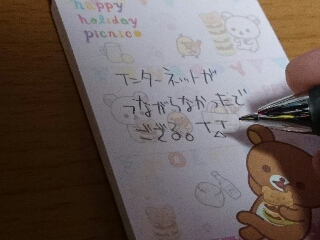 happy
holiday
picnic
インターネットが
つながらなかったで
ござる。TT